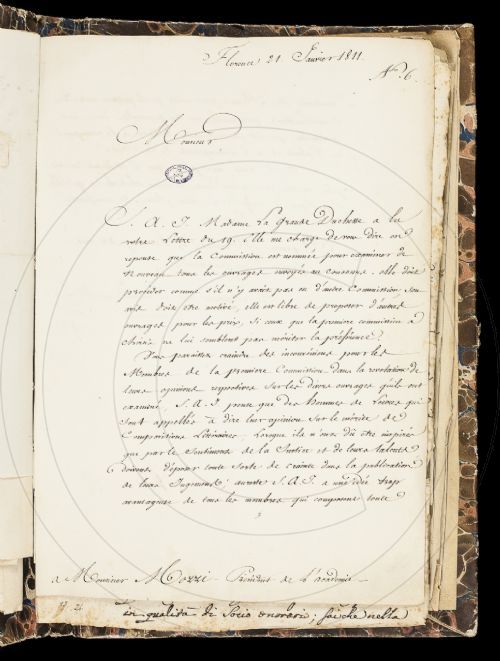 Florence 21 Janvier 1811.
N.º 6.
Monsieur
S. A. I. Madame La Grande Duchesse a lu
votre Lettre du 19. Elle me charge de vous dire en
reponse que la Commission est nommée pour examiner de
Nouveau tous les ouvrages envoyés au Concours. elle doit
proceder comme s'il n'y avait pas eu d'autre Commission. Son
avis doit etre motivé, elle est libre de proposer d'autres
ouvrages pour les prix, si ceux que la premiere commission a
choisis ne lui semblent pas mériter la préférence.
Vous paraissez craindre des inconveniens pour les
Membres de la premiere Commission dans la revelation de
leurs opinions respectives sur les divers ouvrages qu'ils ont
examiné. S. A. I. pense que des hommes de Lettres qui
sont appellés à dire leur opinion sur le mérite de
Compositions Littéraires, Lorsque ils n'ont dû être inspirés
que par le Sentiment de la Justice et de leurs talents
doivent déposer toute sorte de crainte dans la publication
de leurs Jugements; au reste S. A. I. a une idée trop
avantageuse de tous les membres qui composent toute
a Monsieur Mozzi Président de L'académie
in qualità di Socio onorario; fa che nella